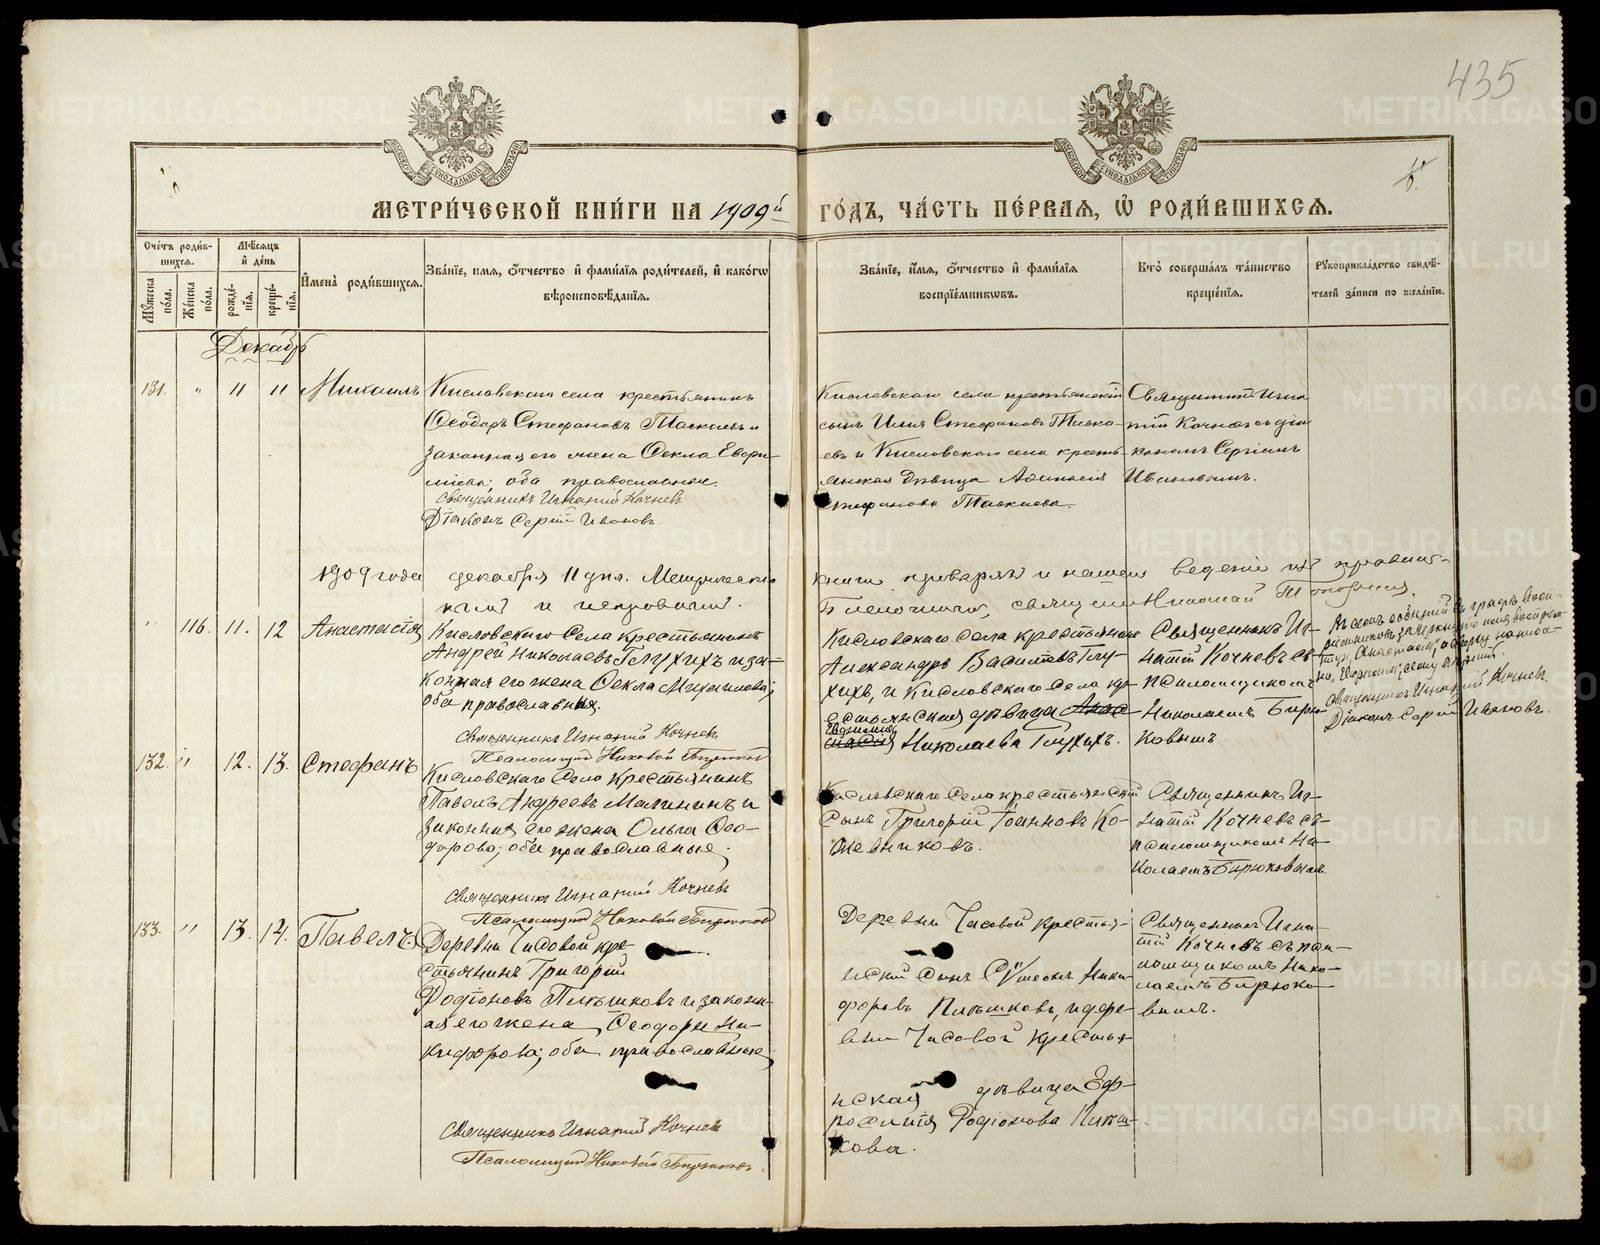 435
МЕТРИ́ЧЕСКОЙ КНИ́ГИ НА 1909й ГО́ДЪ, ЧА́СТЬ ПЕ́РВАЯ, Ѡ҆ РОДИ́ВШИХСЯ.
Сче́тъ роди́в-
шихся.
Мѣ́сяцъ
и҆ де́нь
Мꙋ́жеска по́ла.
Же́нска по́ла.
рожде́-
нїѧ.
креще́-
нїѧ.
И҆мена̀ роди́вшихся.
Зва́нїе, и҆мя, ѻ҆́тчество и҆ фами́лїя роди́телей, и҆ како́гѡ
вѣроисповѣ́данїя.
Зва́нїе, и҆́мя, ѻ҆́тчество и҆ фами́лїя
воспрїе́мникѡвъ.
Кто̀ соверша́лъ та́инство
креще́нїя.
Рꙋкоприкла́дство свидѣ́-
телей за́писи по жела́нїю.
Декабрь
131. " 11 11 Михаилъ
Кисловскаго села крестьянинъ
Ѳеодоръ Стефановъ Таскаевъ и
законная его жена Ѳекла
оба православные.
Священникъ Игнатій Кочневъ
Діаконъ Сергій Ивановъ.
Кисловскаго села крестьянскій
сынъ Илія Стефановъ Таска-
евъ и Кисловскаго села кресть-
янская дѣвица Аѳанасія
Стефанова Таскаева.
Священникъ Игна
тій Кочневъ съ діа
кономъ Сергіемъ
Ивановымъ.
1909 года декабря 11 дня.
священ Николай
" 116. 11. 12 Анастасія
Кисловскаго Села крестьянинъ
Андрей Николаевъ Глухихъ и за-
конная его жена Ѳекла Михаилова;
оба православныя.
Священникъ Игнатій Кочневъ
Псаломщикъ Николай Бирюковъ
Кисловскаго Села крестьянинъ
Александръ Васильевъ Глу-
хихъ, и Кисловскаго Села кр-
естьянская дѣвица Анас-
тасія Николаева Глухихъ.
Священникъ Иг-
натій Кочневъ съ
псаломщикомъ
Николаемъ Бирю-
ковымъ
Священникъ Игнатій Кочневъ
Діаконъ Сергій Ивановъ.
132. " 12. 13. Стефанъ
Кисловскаго Села Крестьянинъ
Павелъ Андреевъ Малининъ и
законная его жена Ольга Ѳео-
дорова; оба православные.
Священникъ Игнатій Кочневъ
Псаломщикъ Николай Бирюковъ
Кисловскаго Села крестьянскій
Сынъ Григорій Іоанновъ Ко-
жевниковъ.
Священникъ Иг-
натій Кочневъ съ
псаломщикомъ Ни-
колаемъ Бирюковымъ.
133. " 13. 14. Павелъ.
Деревни Часовой кре-
стьянинъ Григорій
Родіоновъ Плѣшковъ и закон-
ая его жена Ѳеодора Ни-
кифорова; оба православные.
Священникъ Игнатій Кочневъ
Псаломщикъ Николай Бирюковъ.
Деревни Часовой крестья-
нскій сынъ Сѵмеонъ Ники-
форовъ Плѣшковъ, и дере-
вни Часовой крестья-
нская дѣвица Еф-
росинія Родіонова Плѣш-
кова.
Священникъ Игна-
тій Кочневъ съ пса-
ломщикомъ Нико-
лаемъ Бирюко-
вымъ.